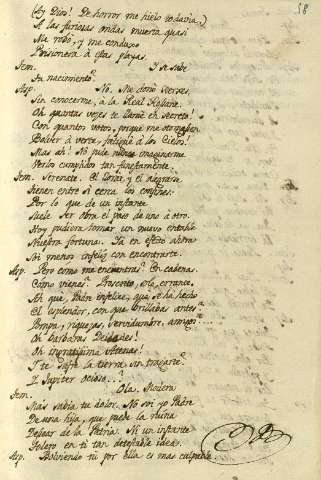 58
(Ay Dios! De horror me hielo todavia.)
A las furiosas ondas muerta quasi
Me robo, y me conduxo
Prisionera à estas playas.
Tem. Y se sabe
Tu nacimiento?
Asp. No. Me donò Xerxes,
Sin conocerme, à la Real Roxane.
Oh quantas vezes te llamè en secreto!
Con quantos votos, porque me otorgassen
Bolver à verte, fatiguè à los Cielos!
Mas ah! No pude nunca imaginarme
Verlos cumplidos tan funestamente.
Tem. Serenate. El llorar, y el alegrarse
Tienen entre sì cerca los confines:
Por lo que de un instante
Suele ser obra el paso de uno à otro.
Hoy pudiera tomar un nuevo entable
Nuestra fortuna. Ya en efecto ahora
Ni menos infeliz con encontrarte.
Asp. Pero como me encuentras? En cadenas.
Como vienes? Proscrito, solo, errante.
Ah que, Padre infelice, que se ha hecho
El esplendor, con que brillabas antes?
Pompa, riquezas, servidumbre, amigos?....
Oh barbaras Deidades!
Oh ingratissima Athenas!
Y te sufre la tierra sin tragarte?
Y Jupiter ocioso...?
Tem. Ola. Modera
Mas sabia tu dolor. No soi yo Padre
De una hija, que puede la ruina
Desear de la Patria. Ni un instante
Tolero en ti tan detestable idea.
Asp. Bolviendo tu por ella es mas culpable.